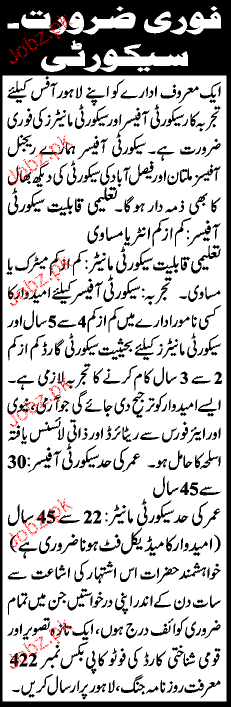 فوری ضرورت۔
سیکورٹی
ایک معروف ادارے کو اپنے لاہور آفس کیلئے
تجربہ کار سیکورٹی آفیسر اور سیکورٹی مانیٹرز کی فوری
ضرورت ہے۔ سیکورٹی آفیسر ہمارے ریجنل
آفیسز ملتان اور فیصل آباد کی سیکورٹی کی دیکھ بھال
کا بھی ذمہ دار ہوگا۔ تعلیمی قابلیت سیکورٹی
آفیسر: کم از کم انٹر یا مساوی
تعلیمی قابلیت سیکورٹی مانیٹر: کم از کم میٹرک یا
مساوی۔ تجربہ: سیکورٹی آفیسر کیلئے امیدوار کا
کسی نامور ادارے میں کم از کم 4 سے 5 سال اور
سیکورٹی مانیٹرز کیلئے بحیثیت سیکورٹی گارڈ کم از کم
2 سے 3 سال کام کرنے کا تجربہ لازمی ہے۔
ایسے امیدوار کو ترجیح دی جائے گی جو آرمی، نیوی
اور ایئر فورس سے ریٹائرڈ اور ذاتی لائسنس یافتہ
اسلحہ کا حامل ہو۔ عمر کی حد سیکورٹی آفیسر: 30
سے 45 سال
عمر کی حد سیکورٹی مانیٹر: 22 سے 45 سال
(امیدوار کا میڈیکل فٹ ہونا ضروری ہے)
خواہشمند حضرات اس اشتہار کی اشاعت سے
سات دن کے اندر اپنی درخواستیں جن میں تمام
ضروری کوائف درج ہوں، ایک تازہ تصویر اور
قومی شناختی کارڈ کی فوٹو کاپی بکس نمبر 422
معرفت روزنامہ جنگ، لاہور پر ارسال کریں۔
Jobz.pk
Jobz.pk
Jobz.pk
Jobz.pk
Jobz.pk